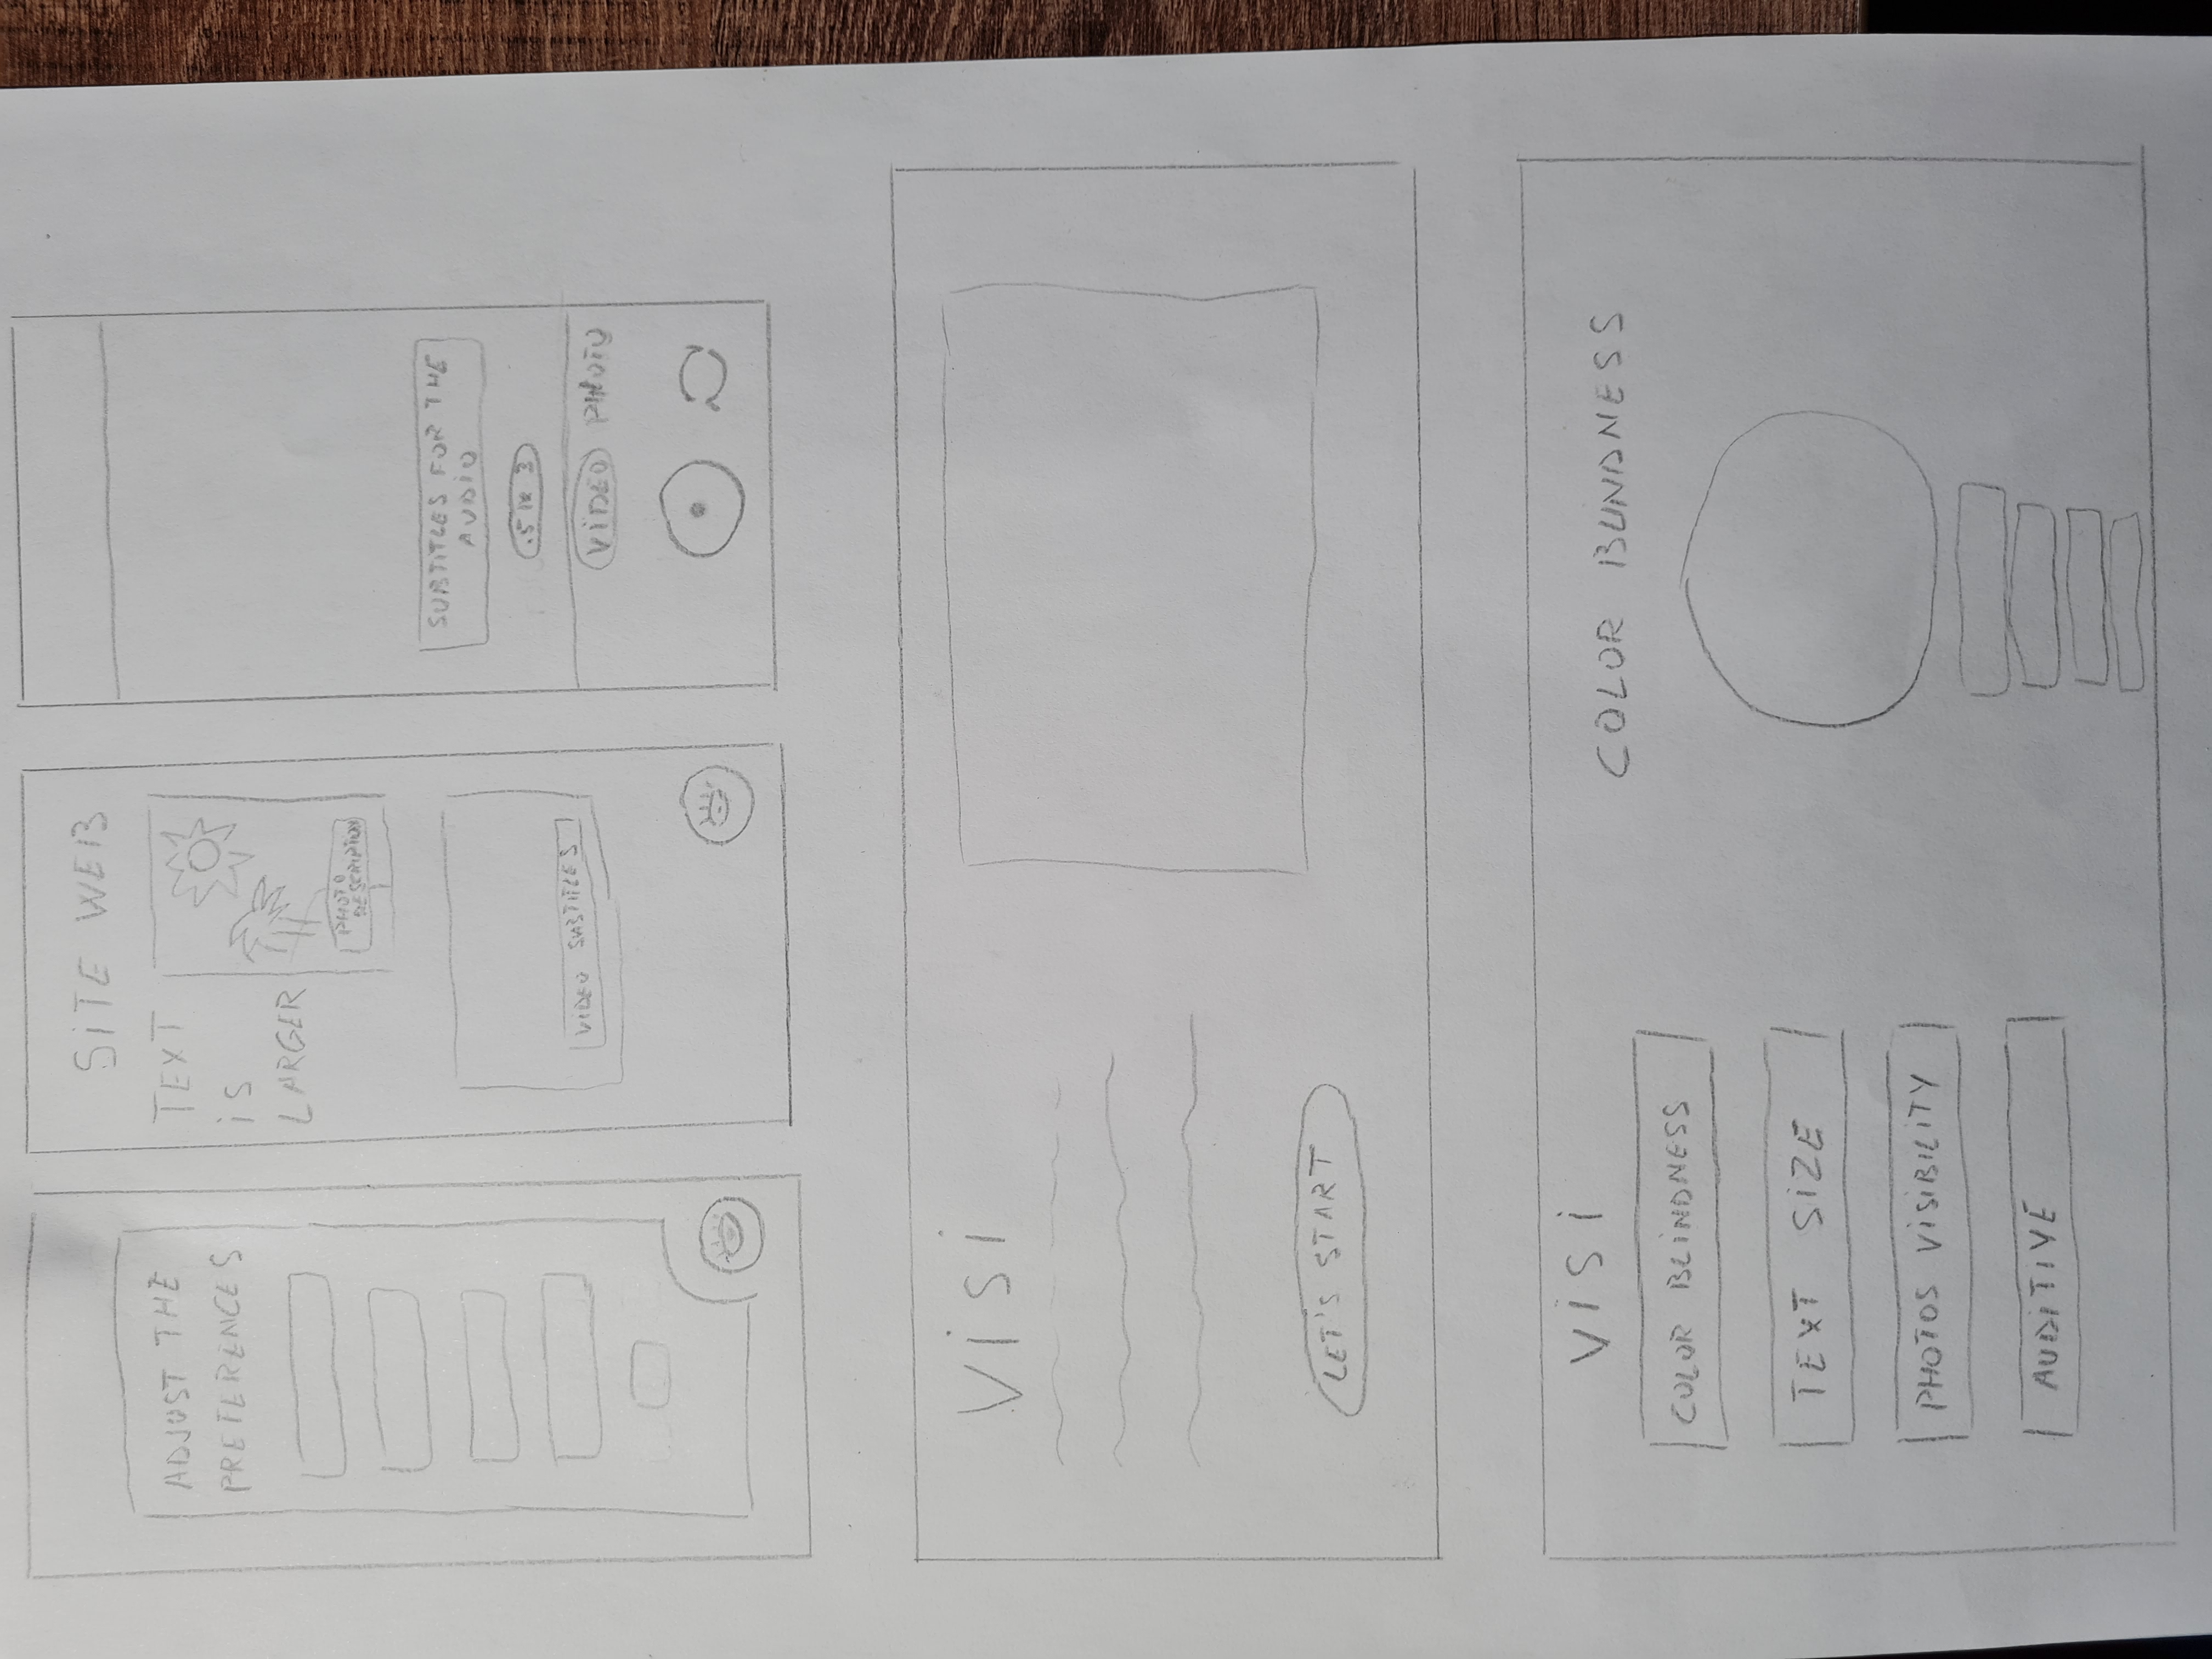 ADJUST THE
PREFERENCES
SiTE WEB
TEXT
iS
LARGER
PHOTO
DESCRIPTION
ViDEO SUBTITLES
SUBTITLES FOR THE
AUDIO
.5 1x 3
ViDEO PHOTO
ViSi
LET'S START
ViSi
COLOR BLiNDNESS
TEXT SiZE
PHOTOS ViSiBiLiTY
AUDiTiVE
COLOR BLINDNESS